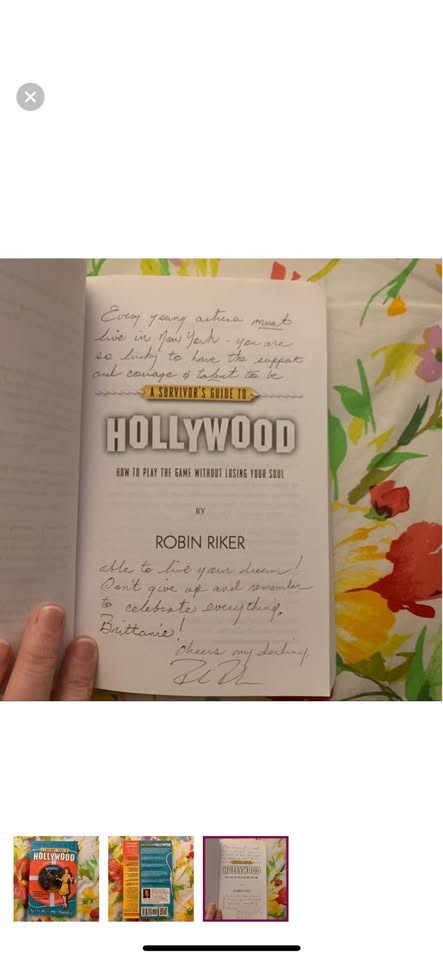 Every young actress must
live in New York - you are
so lucky to have the support
and courage & talent to be
A SURVIVOR'S GUIDE TO
HOLLYWOOD
HOW TO PLAY THE GAME WITHOUT LOSING YOUR SOUL
BY
ROBIN RIKER
able to live your dream!
Don't give up and remember
to celebrate everything,
Brittanie!
Cheers my darling,
HOLLYWOOD
HOLLYWOOD